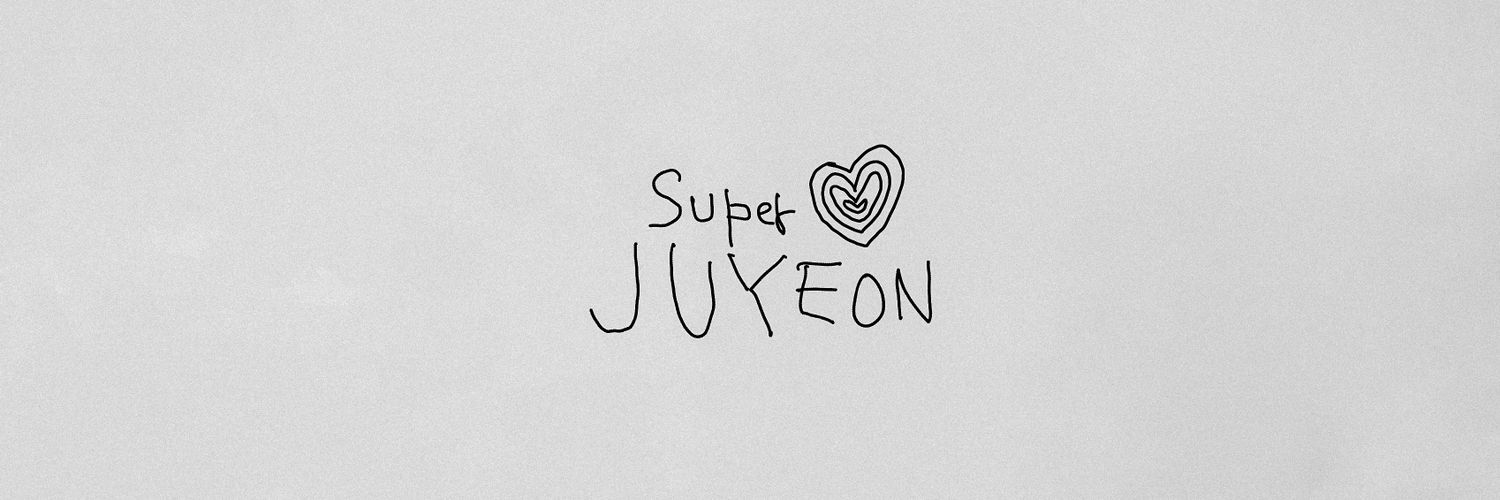 Super
JUYEON